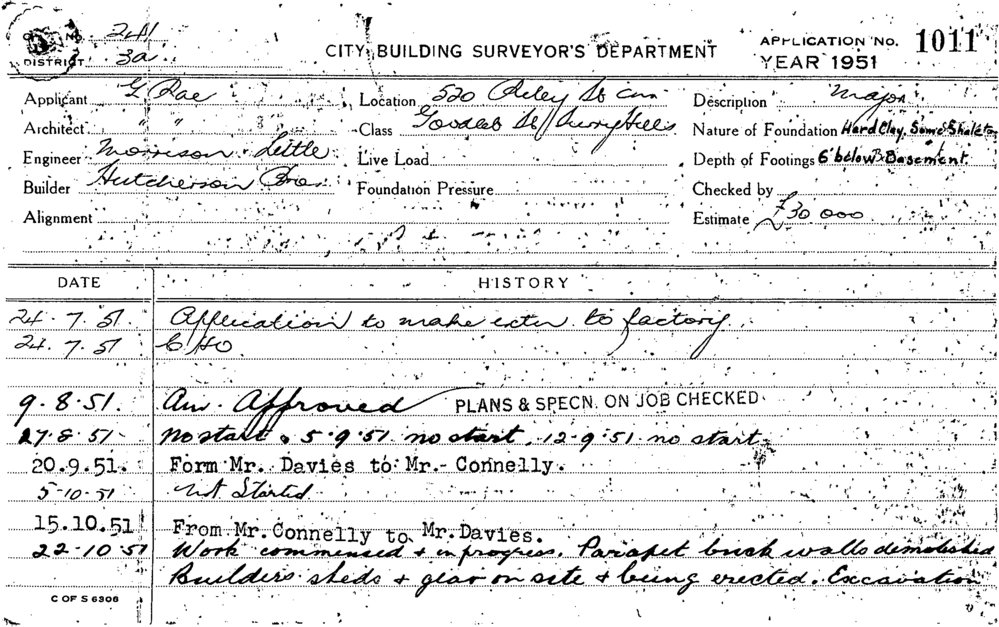 241
DISTRICT 3a
CITY BUILDING SURVEYOR'S DEPARTMENT
APPLICATION No. 1011
YEAR 1951
Applicant G Rae
Location 520 Riley St cnr
Description Major
Architect
Class Goodlet St Surry Hills
Nature of Foundation Hard Clay, Some Shale
Engineer Morrison & Little
Live Load
Depth of Footings 6' below Basement
Builder Hutcherson Bros
Foundation Pressure
Checked by
Alignment
Estimate £30 000
DATE HISTORY
24.7.51 Application to make exten to factory
24.7.51 C HO
9.8.51. Am. Approved PLANS & SPECN. ON JOB CHECKED
27.8.51 No start. 5.9.51 no start. 12-9.51 no start
20.9.51. Form Mr. Davies to Mr. Connelly.
5-10-51 Not Started
15.10.51 From Mr. Connelly to Mr. Davies.
22-10-51 Work commensed & in progress. Parapet brick walls demolished
Builders sheds & gear on site & being erected. Excavation
C OF S 6306